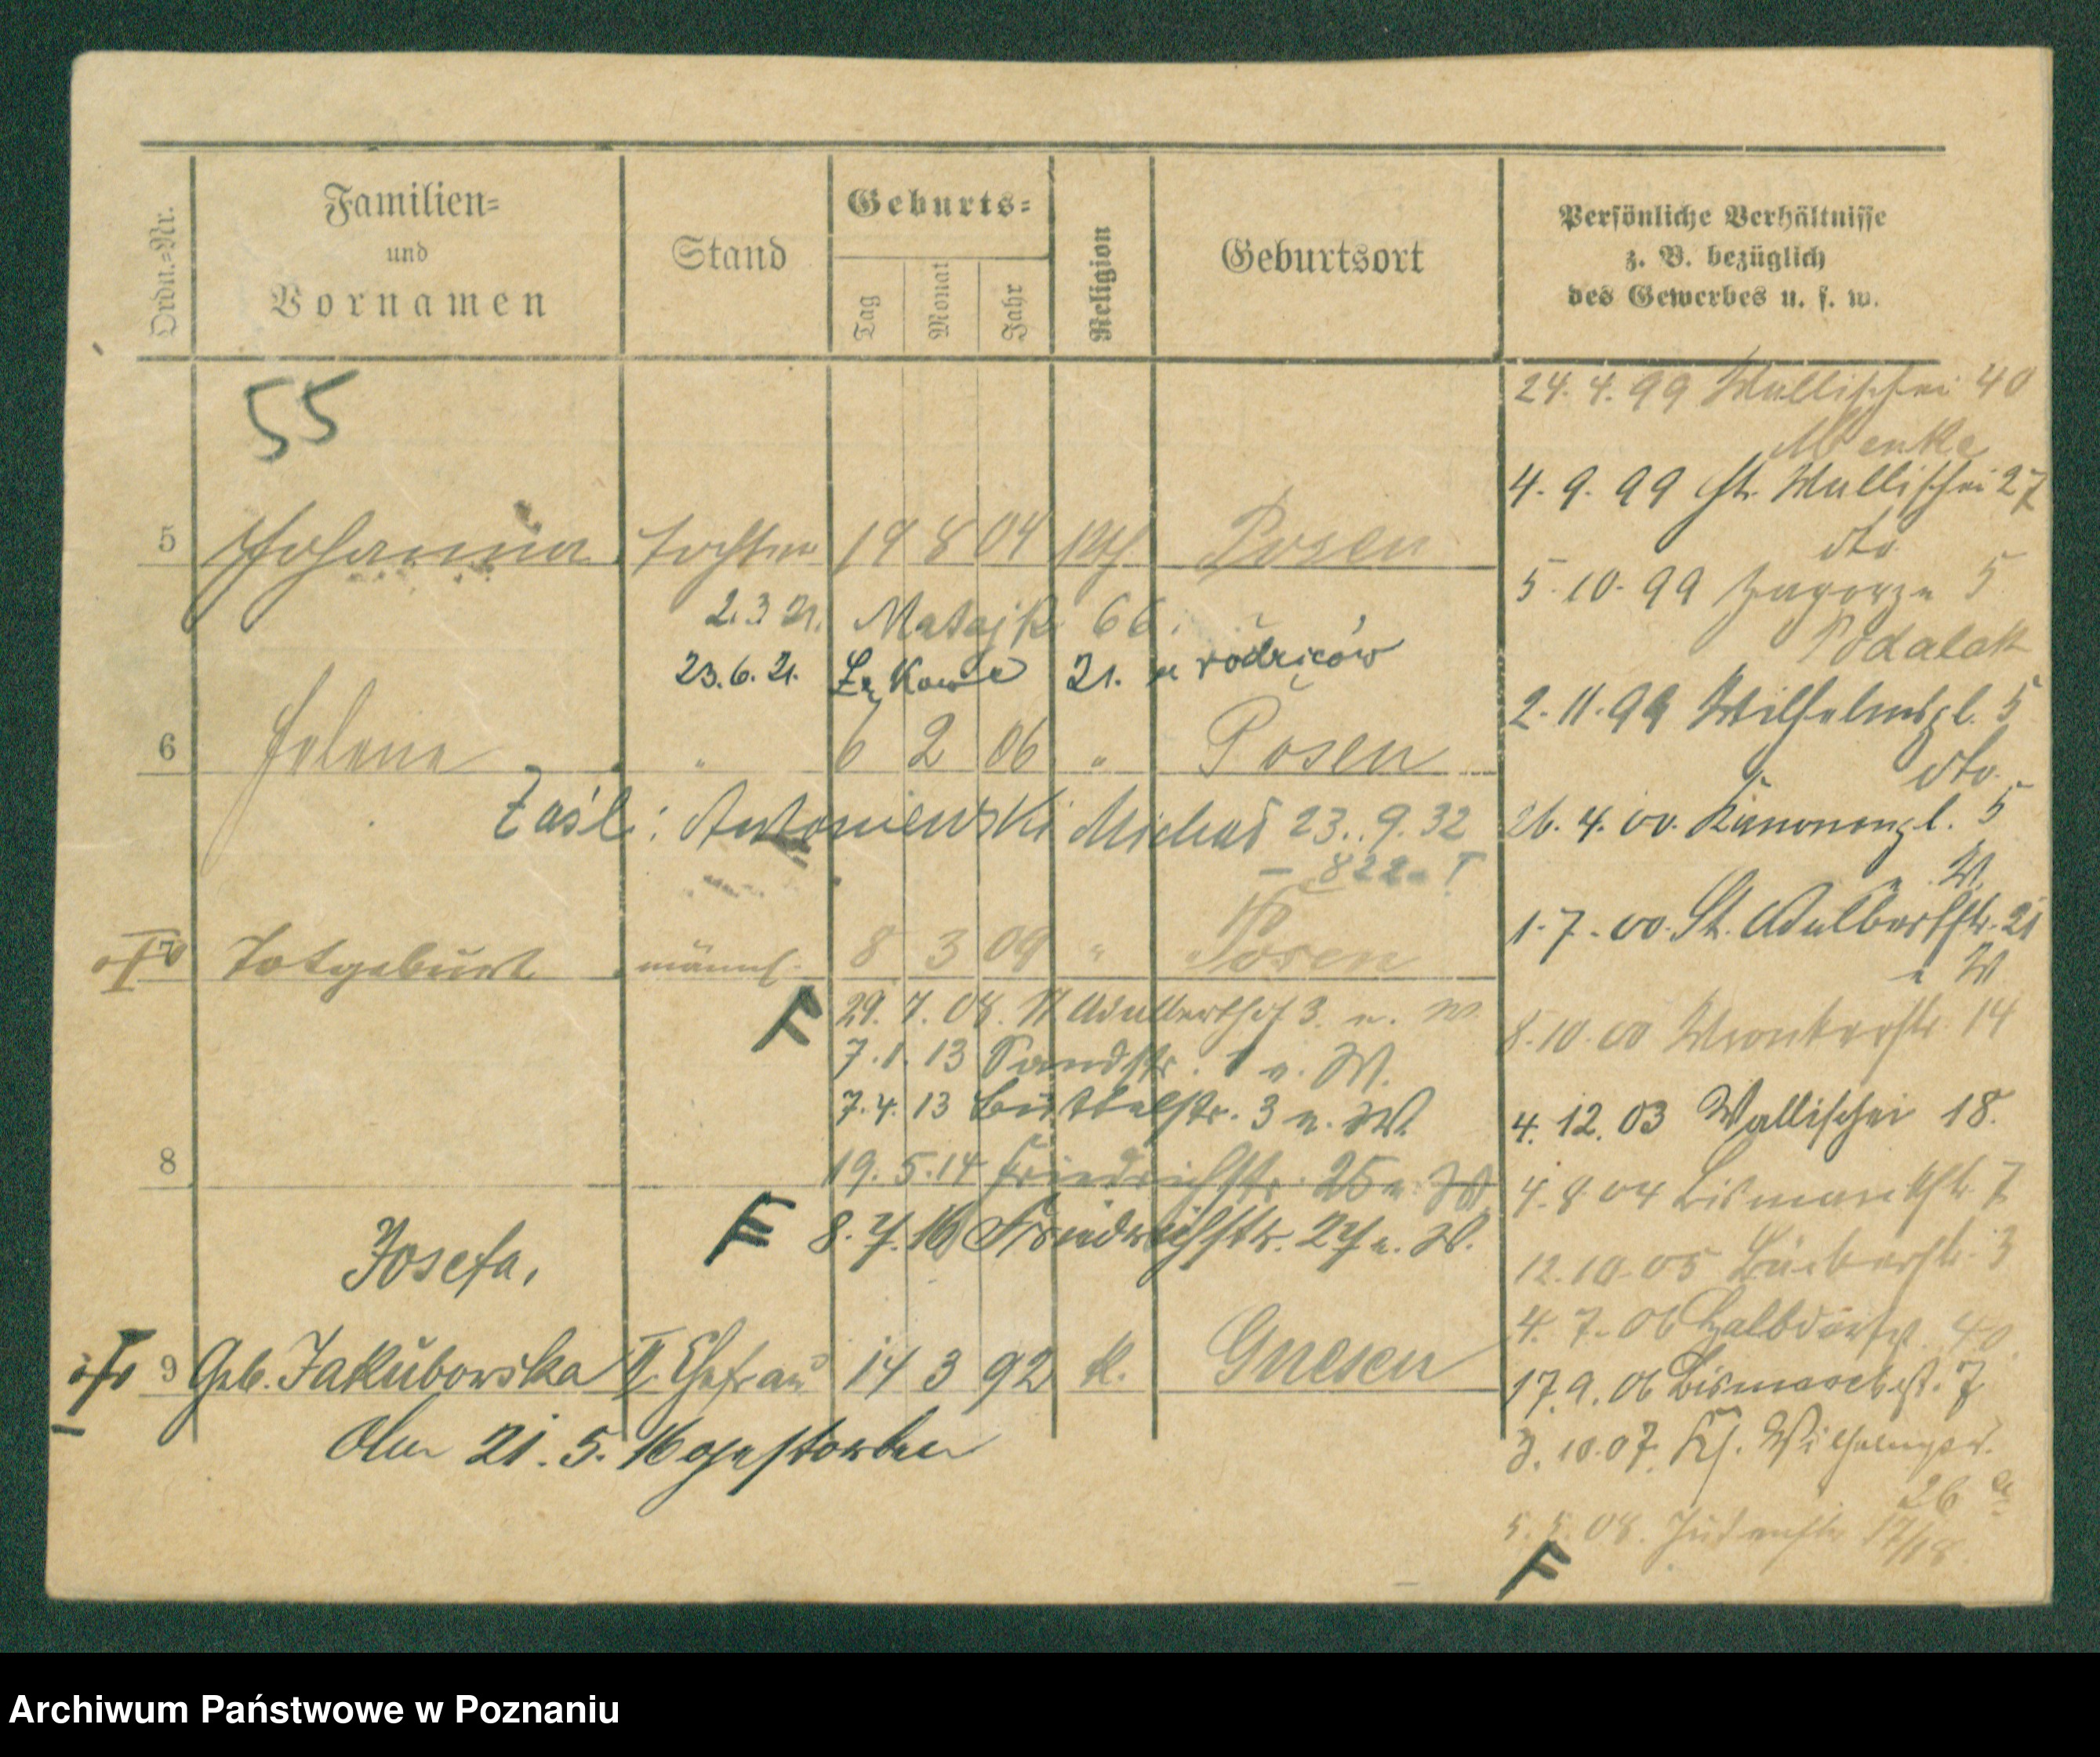 Ordn.=Nr.
Familien=
und
Vornamen
Stand
Geburts=
Tag
Monat
Jahr
Religion
Geburtsort
Persönliche Verhältnisse
z. B. bezüglich
des Gewerbes u. s. w.
55
5 Johanna Tochter 19 8 04 kth Posen
2.3 21. Matejk 66.
23.6.21. Łąkowa 21. u rodziców
6 Helene " 6 2 06 " Posen
Zaśl: Antoniewski Michał 23.9.32
- 822 - I
7 Totgeburt männl. 8 3 09 " Posen
F 29. 7. 08. Adalbertstr 3. u. W
7.1.13 Sandstr. 1 u. W.
7.4.13 Büttelstr. 3 u. W.
8
19.5.14 Friedrichstr. 25 u. W
F 8.7.16 Friedrichstr. 27 u. W.
Josefa,
9 Geb. Jakubowska II. Ehefrau 14 3 92 k. Gnesen
Am 21.5.16 gestorben
24.4.99 Wallischei 40
Menke
4.9.99 Wallischei 27
dto
5.10.99 Zagorze 5
Podalak
2.11.99 Wilhelmspl. 5
dto.
26.4.00. Kanonenpl. 5
u W.
1.7.00. St. Adalbertstr. 21
u W
8.10.00 Wronkerstr. 14
4.12.03 Wallischei 18.
4.8.04 Bismarckstr. 7
12.10.05 Bäckerstr. 3
4.7.06 Halbdorfst. 40
17.9.06 Bismarckst. 7
3.10.07.
26 a
5.5.08. Judenstr 17/18
F
Archiwum Państwowe w Poznaniu